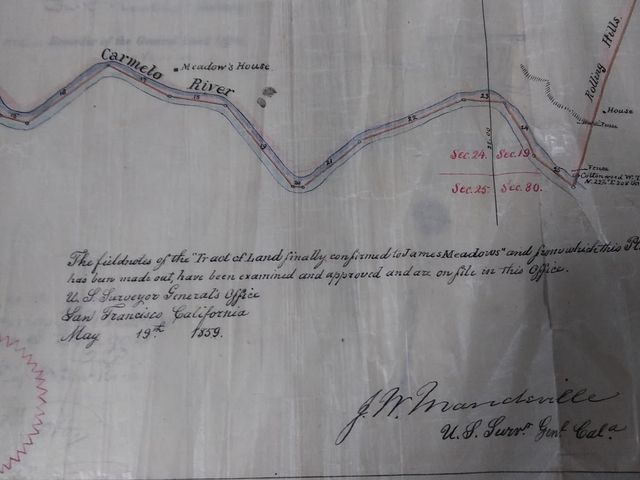 Carmelo River
Meadow's House
Rolling Hills
House
Fence
Sec. 24. Sec. 19.
Sec. 25. Sec. 30.
Cottonwood
22
23
24
21
The fieldnotes of the "Tract of Land finally confirmed to James Meadows" and from which this
has been made out, have been examined and approved and are on file in this Office.
U. S. Surveyor General's Office
San Francisco California
May 19th 1859.
J. W. Mandeville
U. S. Survr Genl Cala